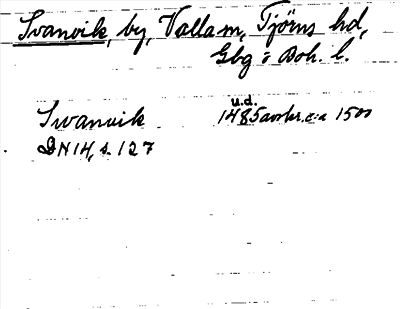 Svanvik, by, Valla sn, Tjörns hd,
Gbg o Boh. l.
u.d.
Swanwik 1485 avskr. c:a 1500
DN 14, s. 127